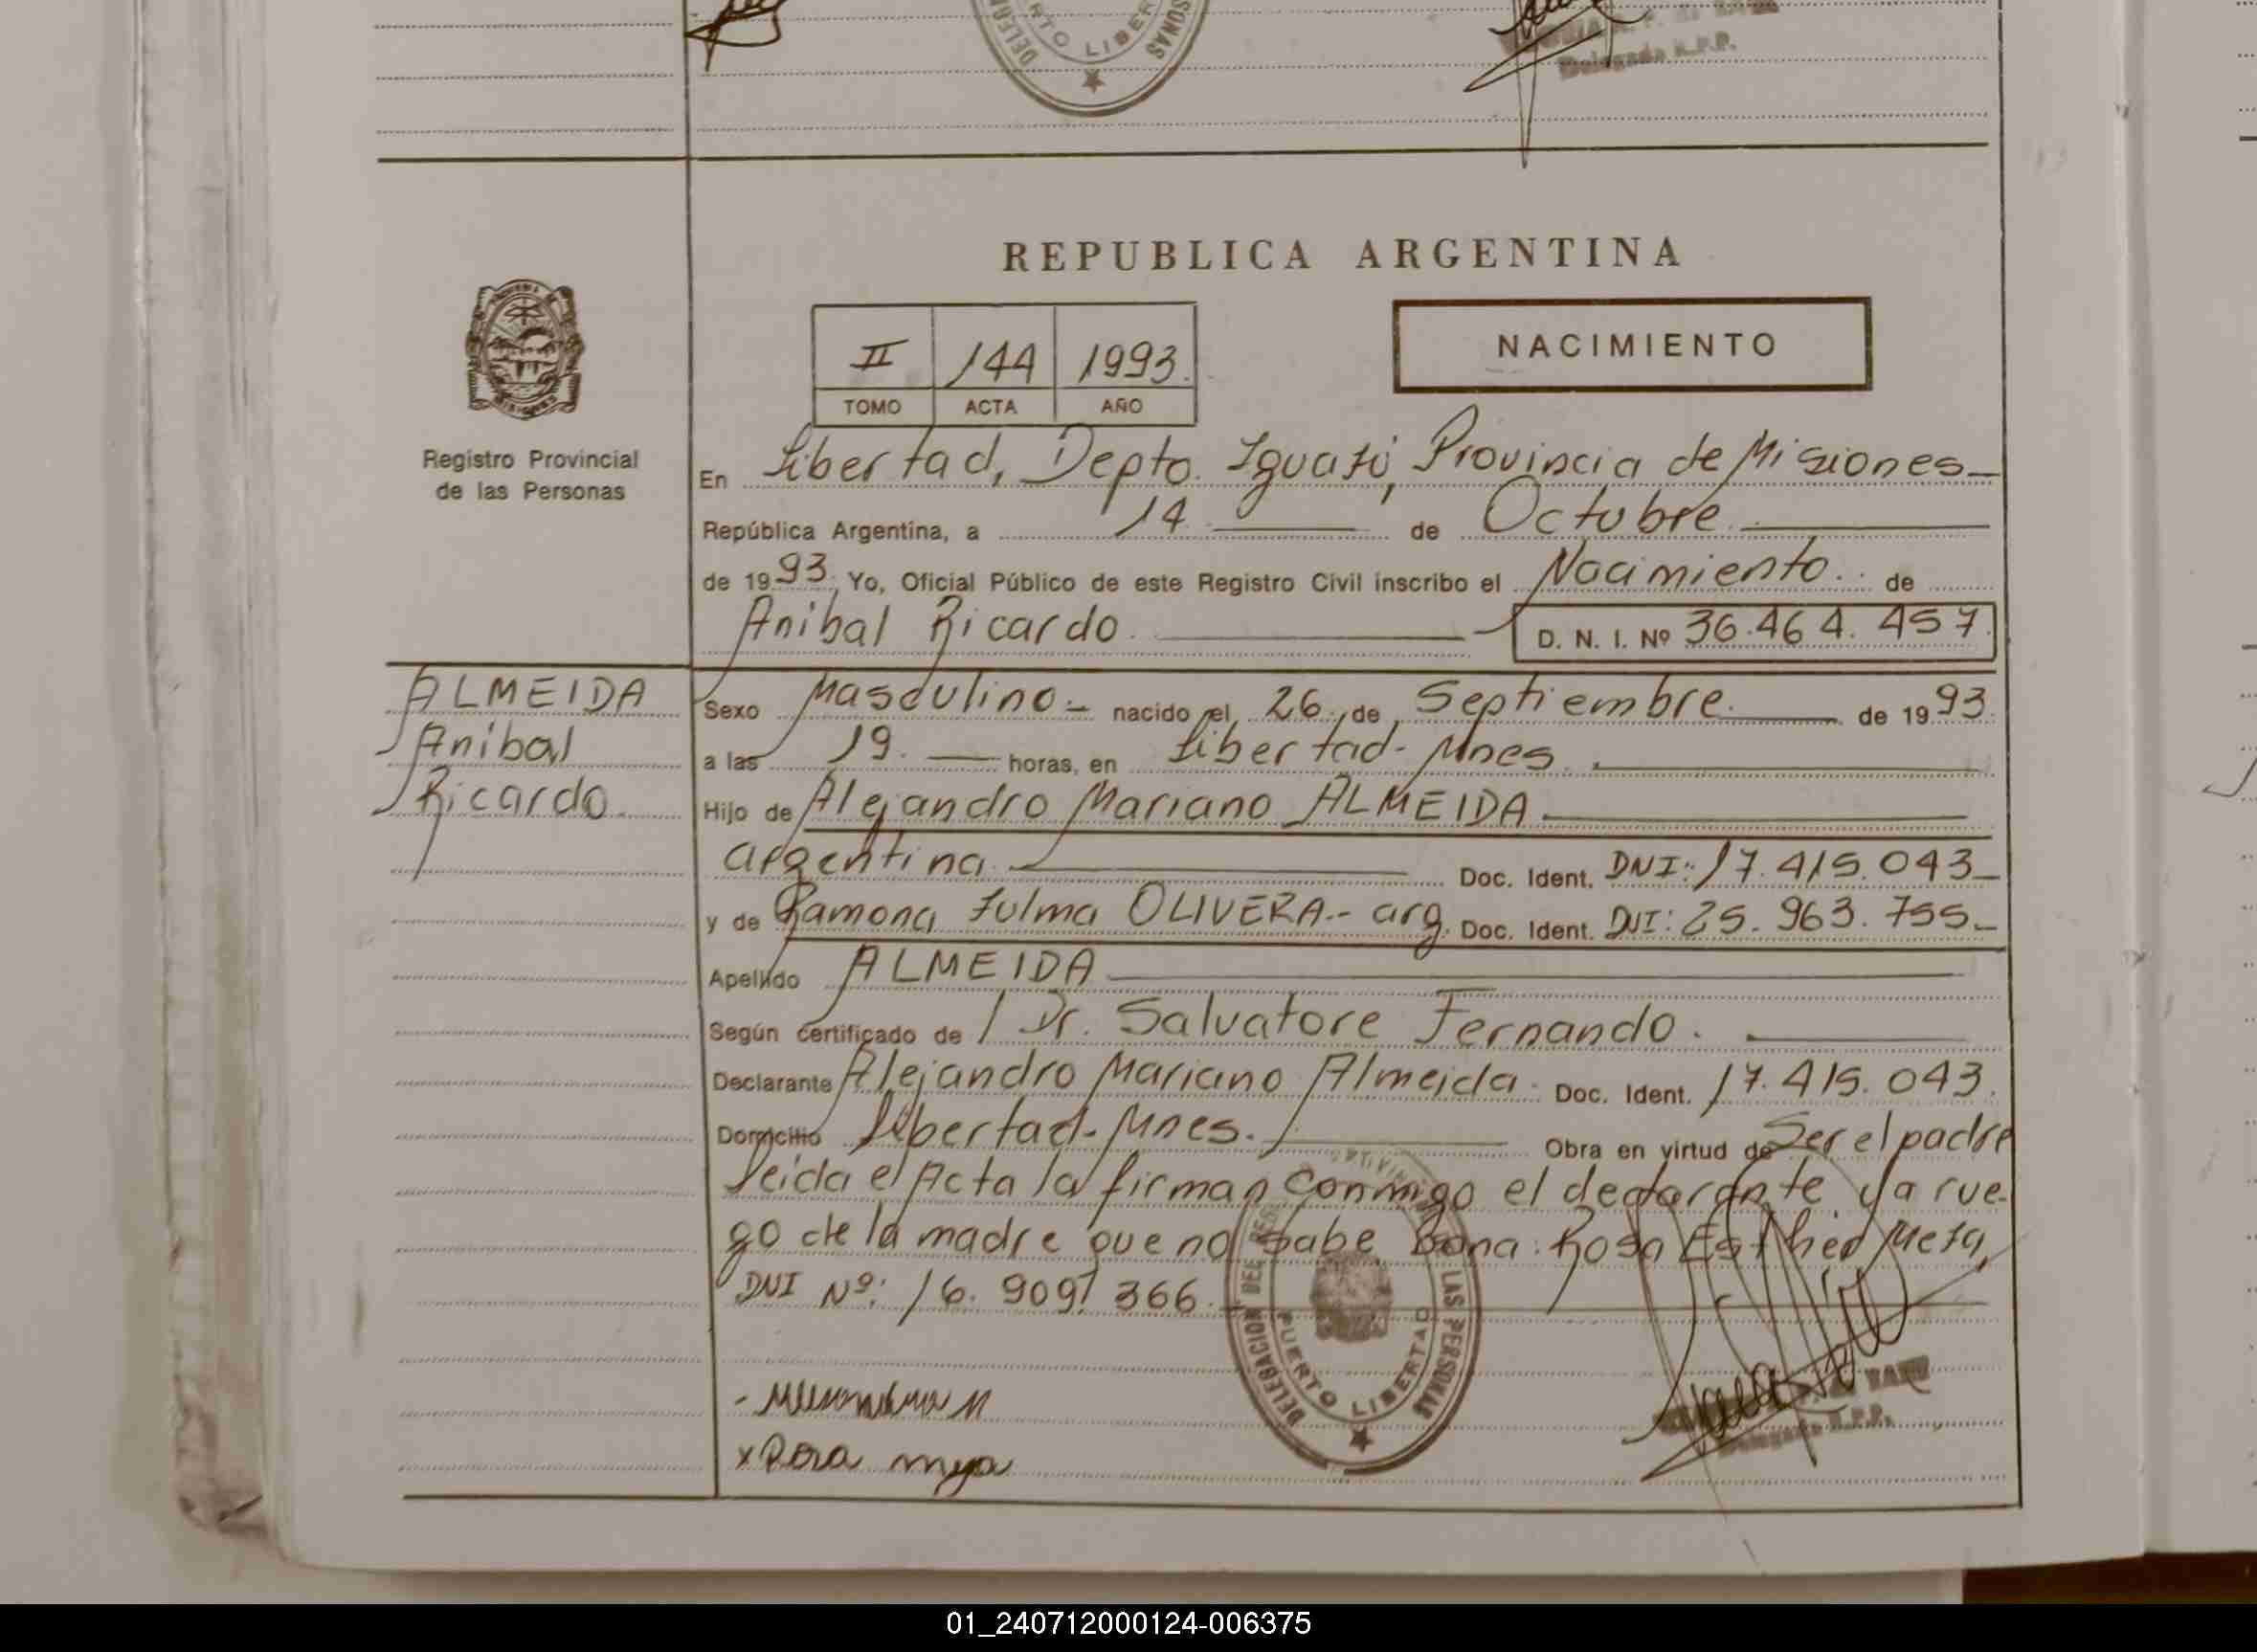 DELEG
RTO LIBER
SONAS
Delegada R.P.P.
REPUBLICA ARGENTINA
II 144 1993.
TOMO ACTA AÑO
NACIMIENTO
Registro Provincial
de las Personas
En Libertad, Depto. Iguasú, Provincia de Misiones
República Argentina, a 14 de Octubre
de 1993. Yo, Oficial Público de este Registro Civil inscribo el Nacimiento. de
Anibal Ricardo. D. N. I. Nº 36.464.457.
ALMEIDA
Anibal
Ricardo.
Sexo Masculino.- nacido el 26. de Septiembre. de 1993.
a las 19. horas, en Libertad- Mnes.
Hijo de Alejandro Mariano ALMEIDA
argentina Doc. Ident. DNI: 17.415.043
y de Ramona Zulma OLIVERA.- arg. Doc. Ident. DNI: 25.963.755
Apellido ALMEIDA
Según certificado de Dr. Salvatore Fernando.
Declarante Alejandro Mariano Almeida. Doc. Ident. 17.415.043.
Domicilio Libertad- Mnes. Obra en virtud de Ser el padre
leida el Acta la firman conmigo el declarante y a rue-
go de la madre que no sabe Dona: Rosa Esther Meza,
DNI Nº: 16.909.366.
DELEGACION DEL REG LAS PERSONAS
PUERTO LIBERTAD
Delegada R.P.P.
x Rosa meza
01_240712000124-006375